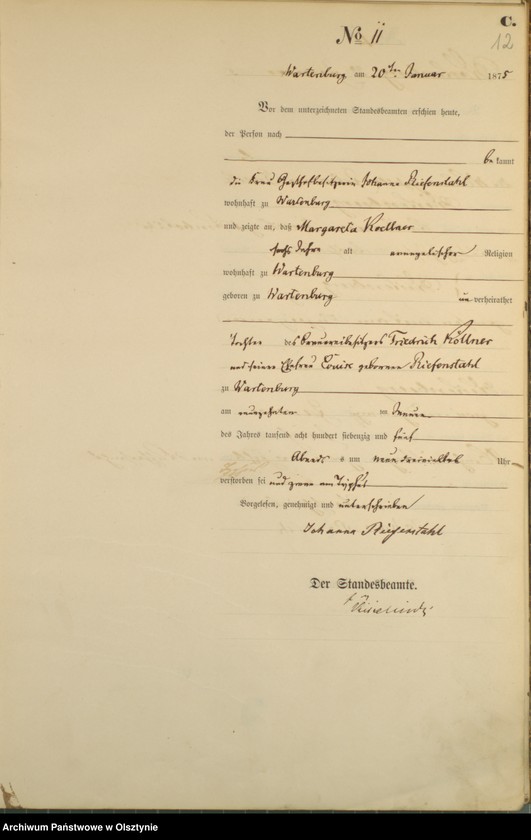 C.
12
No 11
Wartenburg am 20ten Januar 1875
Vor dem unterzeichneten Standesbeamten erschien heute,
der Person nach
bekannt
die Frau Gasthofbesitzerin Johanna Riefenstahl
wohnhaft zu Wartenburg
und zeigte an, daß Margareta Koellner
sechs Jahre alt evangelischer Religion
wohnhaft zu Wartenburg
geboren zu Wartenburg unverheirathet
Tochter des Brauereibesitzers Friedrich Köllner
und seiner Ehefrau Louise geborenen Riefenstahl
zu Wartenburg
am neunzehnten im Januar
des Jahres tausend acht hundert siebenzig und fünf
Abends um neun dreiviertel Uhr
verstorben sei und zwar am Typhus
Vorgelesen, genehmigt und unterschrieben
Johanna Riefenstahl
Der Standesbeamte.
Archiwum Państwowe w Olsztynie